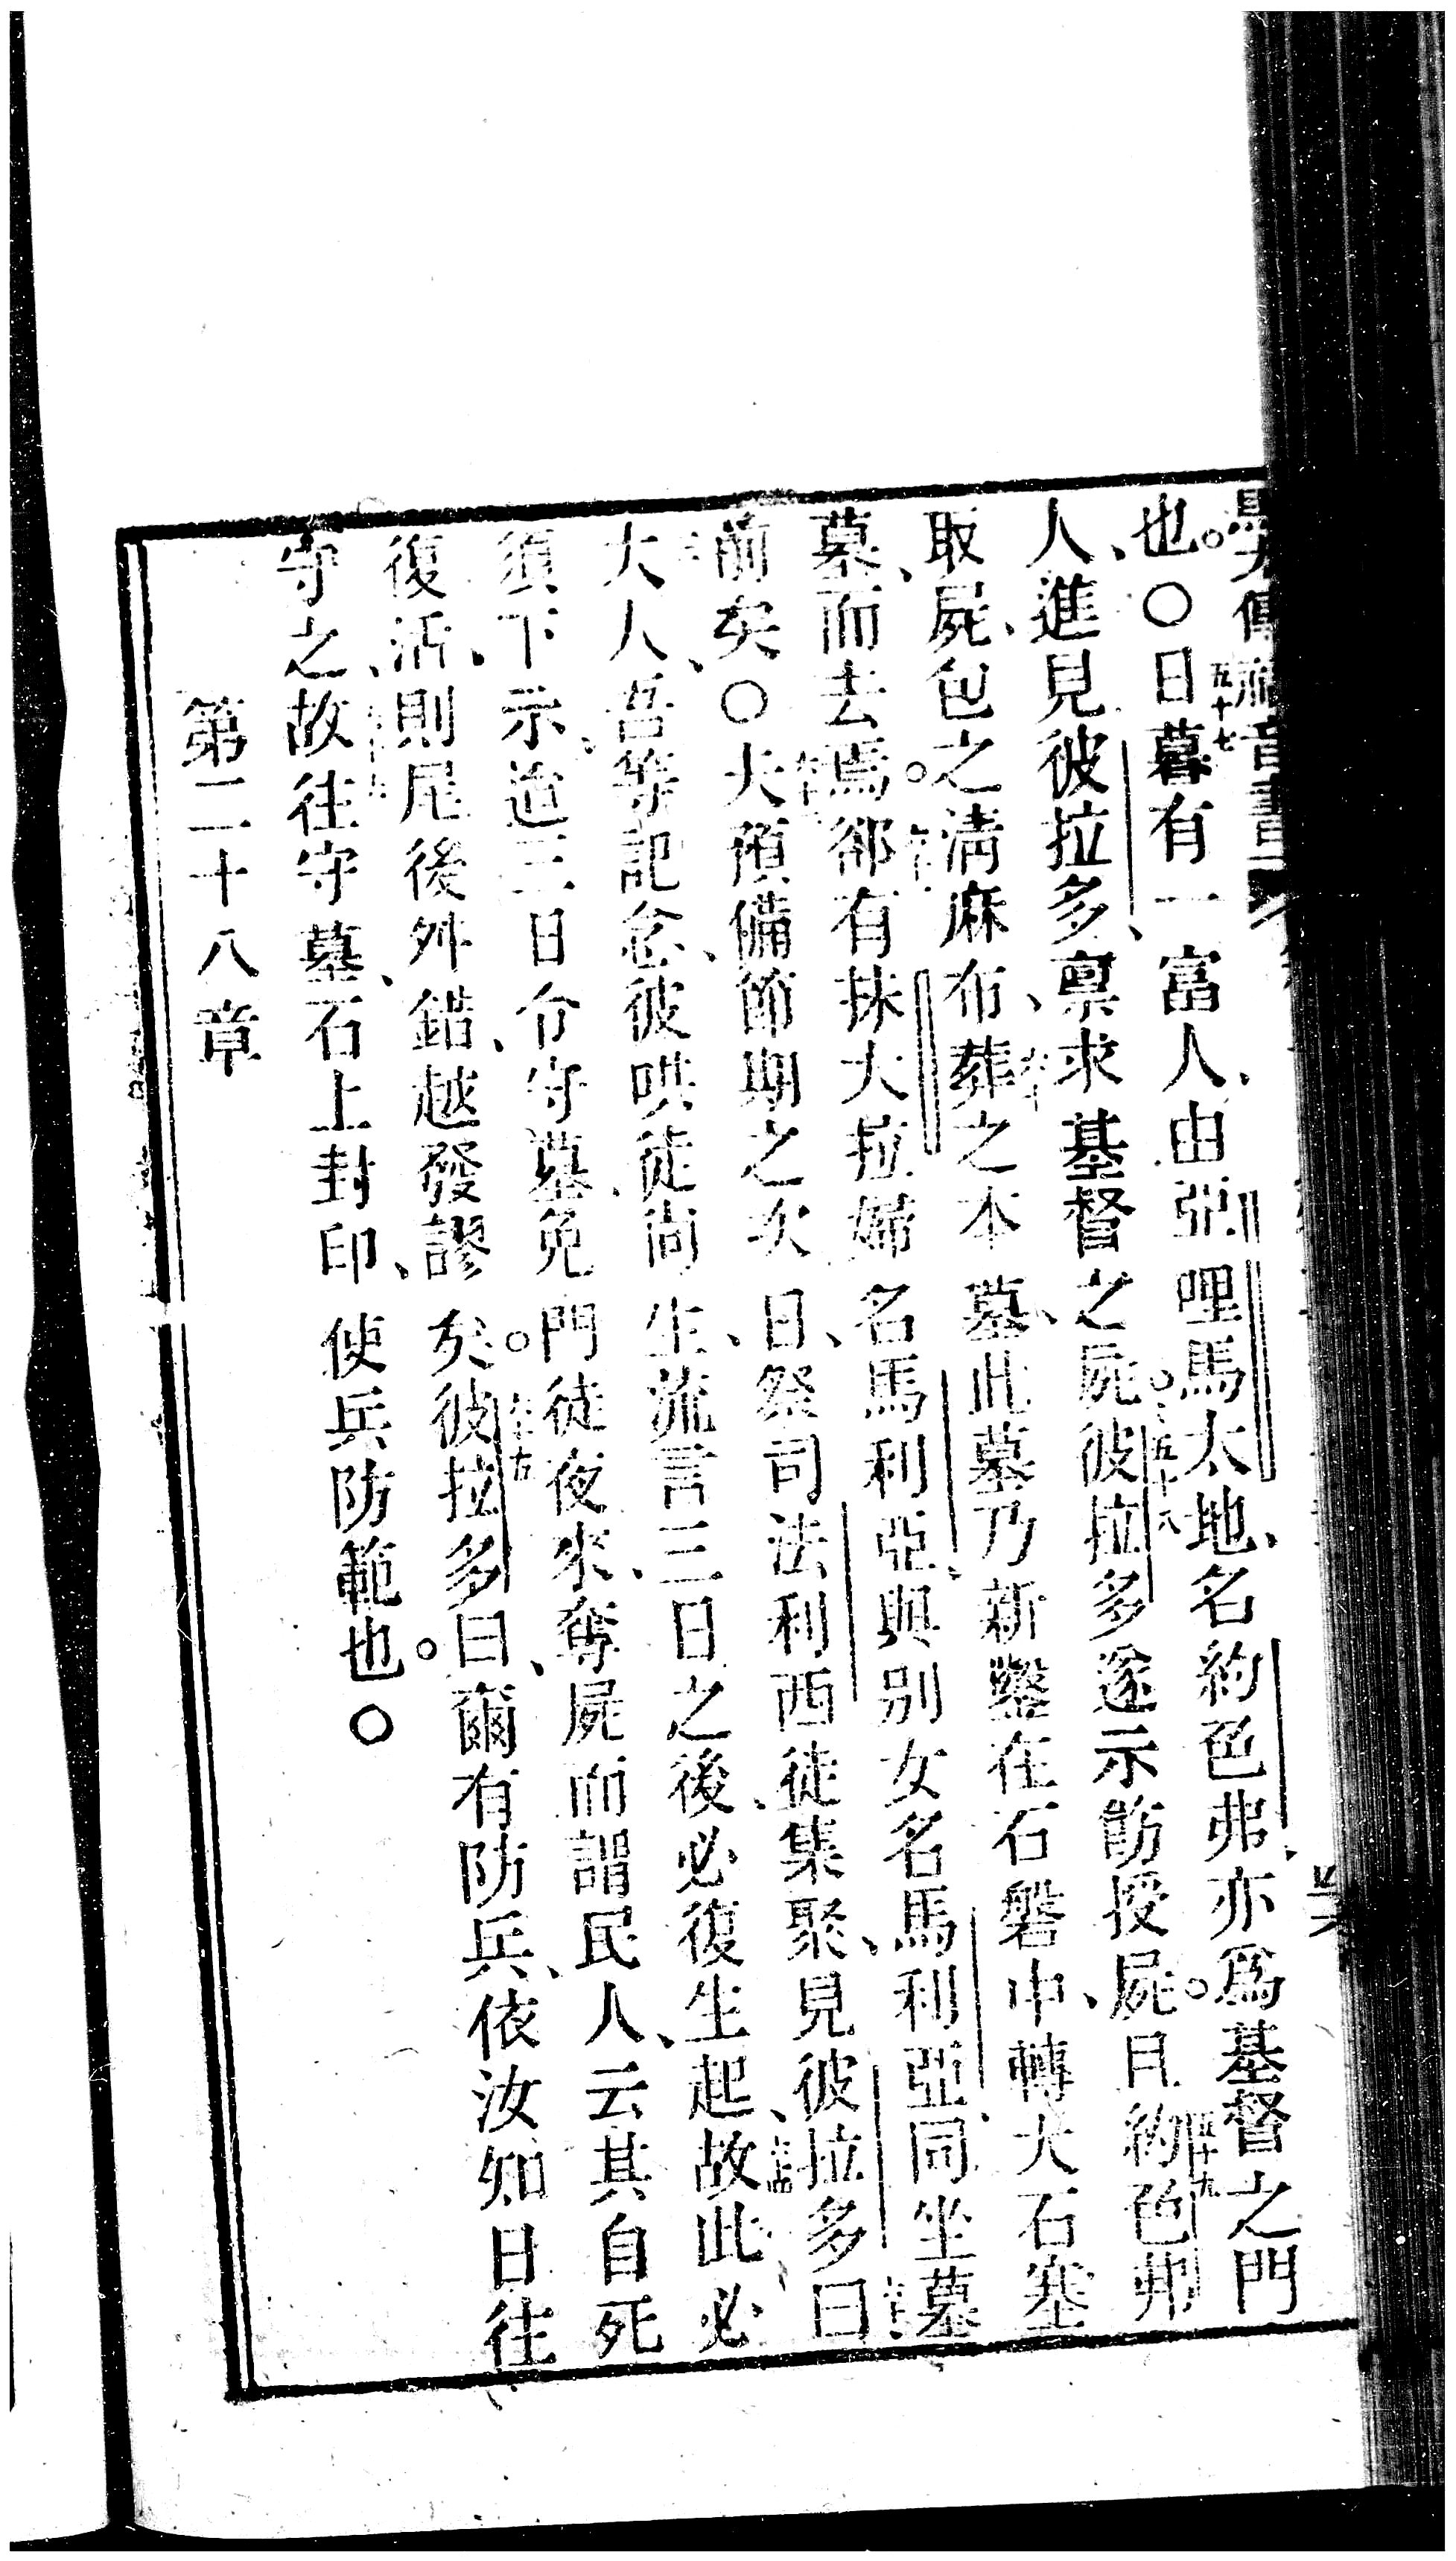 也。〇日暮有一富人、由亞哩馬太地、名約色弗、亦爲基督之門
人、進見彼拉多、禀求基督之屍。彼拉多遂示飭授屍。且約色弗
取屍、包之淸麻布、葬之本墓、此墓乃新鑿在石磐中、轉大石塞
墓、而去焉。卻有抹大拉婦名馬利亞、與别女名馬利亞、同坐墓
前矣〇大預備節期之次日、祭司法利西徒集聚、見彼拉多曰
大人、吾等記念、彼哄徒尚生、流言三日之後、必復生起、故此必
須下示、迨三日、令守墓、免門徒夜來、奪屍而謂民人、云其自死
復活、則尾後舛錯、越發謬矣。彼拉多曰、爾有防兵、依汝知日往
守之、故往守墓、石上封印、使兵防範也。〇
第二十八章